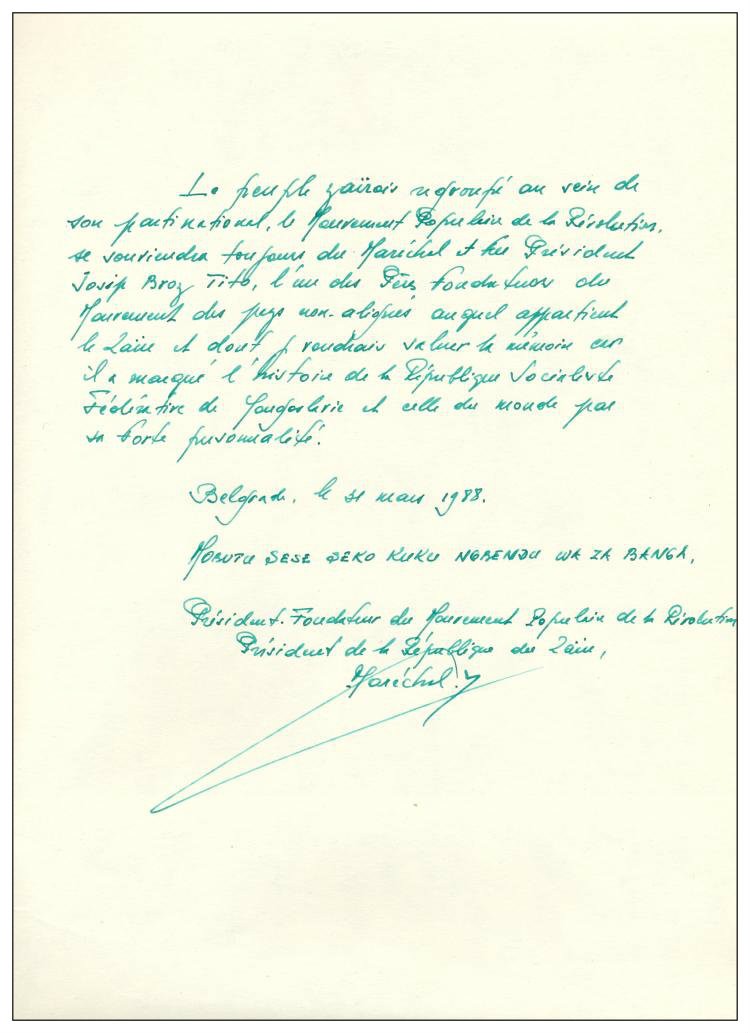 Le peuple zaïrois regroupé au sein de
son parti national, le Mouvement Populaire de la Révolution,
se souviendra toujours du Maréchal et feu Président
Josip Broz Tito, l'un des Pères Fondateurs du
Mouvement des pays non-alignés auquel appartient
le Zaïre et dont je voudrais saluer la mémoire car
il a marqué l'histoire de la République Socialiste
Fédérative de Yougoslavie et celle du monde par
sa forte personnalité.
Belgrade, le 31 mars 1988.
MOBUTU SESE SEKO KUKU NGBENDU WA ZA BANGA,
Président-Fondateur du Mouvement Populaire de la Révolution
Président de la République du Zaïre,
Maréchal.